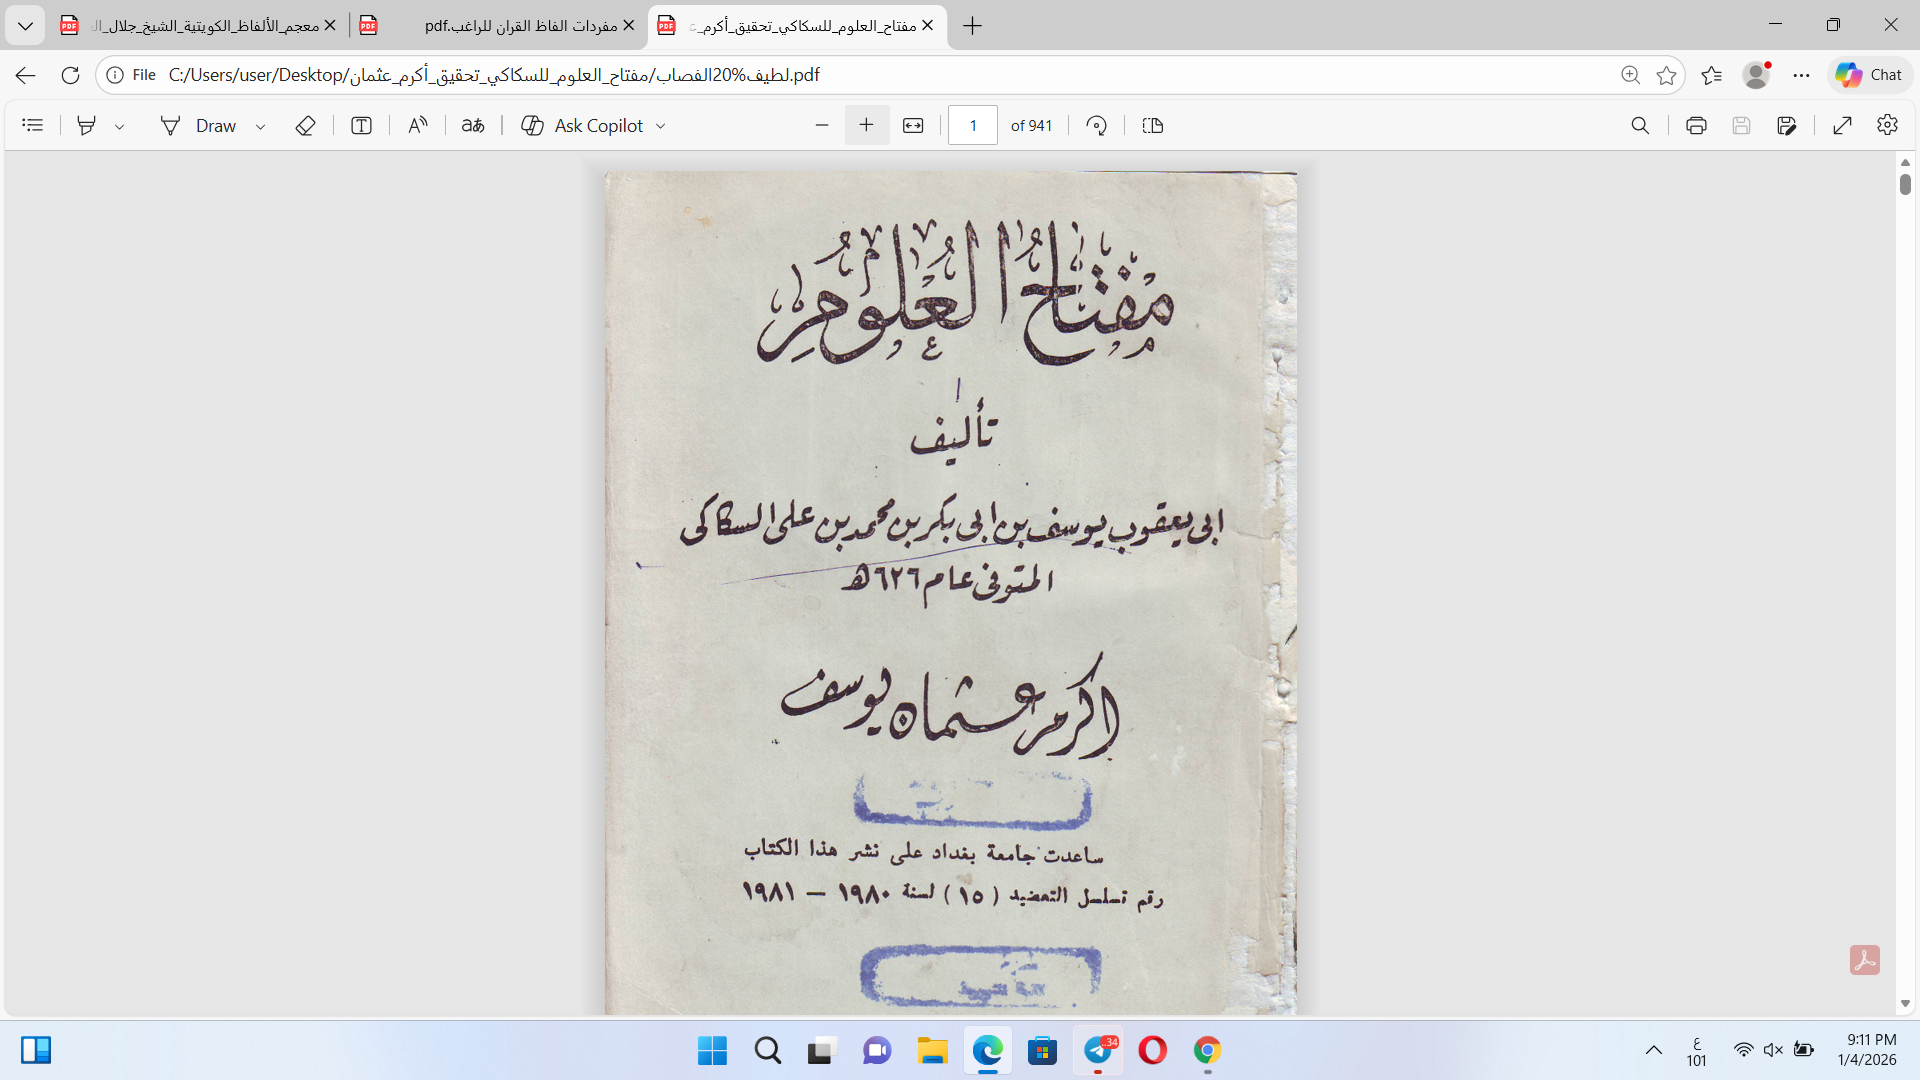 معجم_الألفاظ_الكويتية_الشيخ_جلال_
مفردات الفاظ القران للراغب.pdf
مفتاح_العلوم_للسكاكي_تحقيق_أكرم_
File C:/Users/user/Desktop/لطيف%20الفصاب/مفتاح_العلوم_للسكاكي_تحقيق_أكرم_عثمان.pdf
Chat
Draw
Ask Copilot
1 of 941
مفتاح العلوم
تأليف
ابي يعقوب يوسف بن ابي بكر بن محمد بن علي السكاكي
المتوفى عام ٦٢٦ هـ
اكرم عثمان يوسف
ساعدت جامعة بغداد على نشر هذا الكتاب
رقم تسلسل التعضيد ( ١٥ ) لسنة ١٩٨٠ — ١٩٨١
..34
ع
101
9:11 PM
1/4/2026